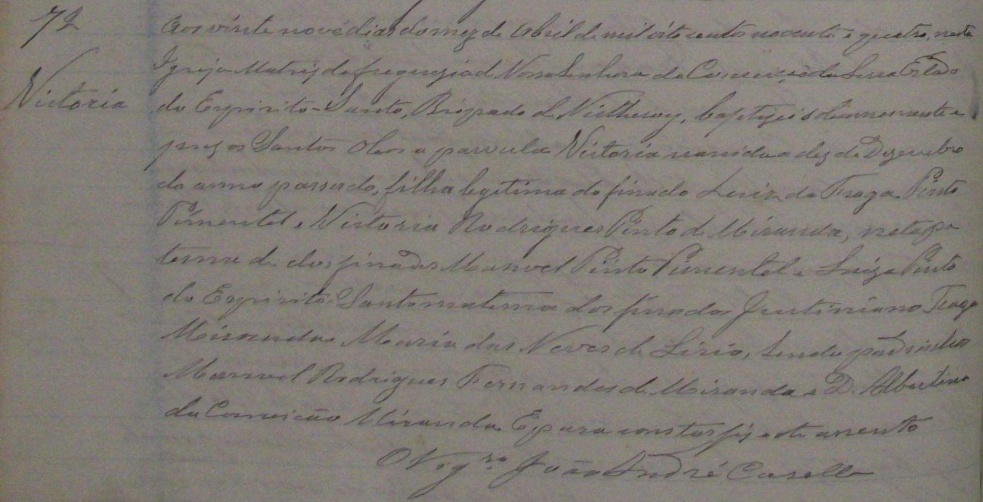 72
Victoria
Aos vinte nove dias do mez de Abril de mil oito cento noventa e quatro, nesta
Igreja Matriz da freguezia de Nossa Senhora da Conceição da Serra Estado
do Espirito-Santo, Bispado de Nictheroy, baptizei solemnemente e
puz os Santos Oleos a parvula Victoria nascida a dez de Dezembro
do anno passado, filha legitima do finado Luiz da Fraga Pinto
Pimentel e Victoria Rodrigues Pinto de Miranda, neta pa
terna de dos finados Manoel Pinto Pimentel e Luiza Pinto
do Espirito Santo materna dos finados Justiniano Fraga
Miranda e Maria das Neves de Lirio, Sendo padrinhos
Manoel Rodrigues Fernandes de Miranda e D. Albertina
da Conceição Miranda. E para constar fiz este assento
O Vigrº João André Casella